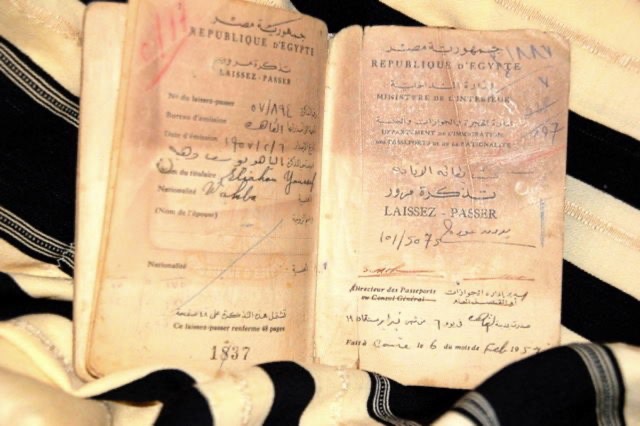 0/17
جمهورية مصر
REPUBLIQUE D'EGYPTE
تذكرة مرور
LAISSEZ-PASSER
No du laissez-passer ٥٧/٨٩٤
Bureau d'émission القاهرة
Date d'émission ١٩٥٧/٢/٦
Nom du titulaire Eliahou Youssef
Nationalité Wahba
(Nom de l'épouse)
Nationalité
تشتمل هذه التذكرة على ٤٨ صفحة
Ce laissez-passer renferme 48 pages
1837
جمهورية مصر
REPUBLIQUE D'EGYPTE
وزارة الداخلية
MINISTERE DE L'INTERIEUR
إدارة الهجرة والجوازات والجنسية
DEPARTEMENT DE L'IMMIGRATION
DES PASSEPORTS ET DE LA NATIONALITE
تذكرة مرور
LAISSEZ-PASSER
بدون عودة
101/5075
Directeur des Passeports
ou Consul Général
مدير إدارة الجوازات
أو القنصل العام
Fait à Caire le 6 du mois de Feb. 1957